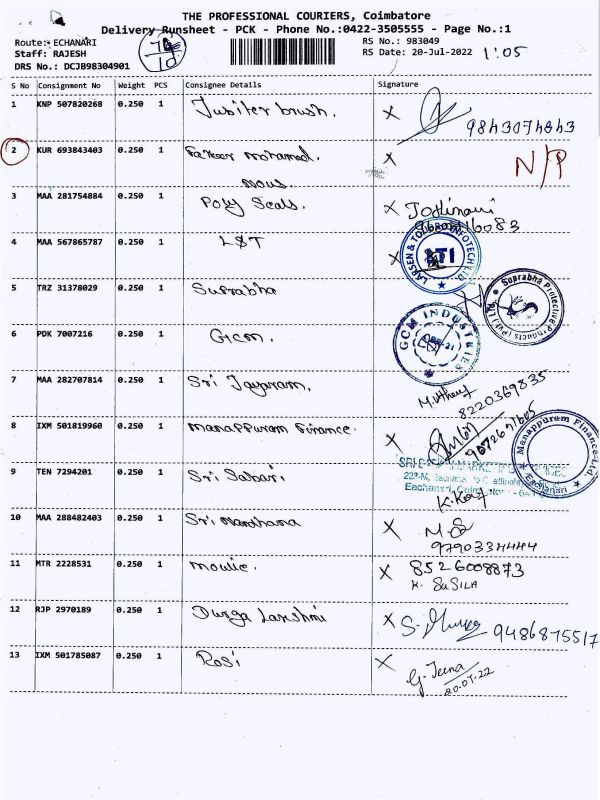 THE PROFESSIONAL COURIERS, Coimbatore
Delivery Runsheet - PCK - Phone No.:0422-3505555 - Page No.:1
Route: ECHANARI
Staff: RAJESH
DRS No.: DCJB98304901
10
RS No.: 983049
RS Date: 20-Jul-2022 1:05
S No Consignment No Weight PCS Consignee Details Signature
1 KNP 507820268 0.250 1 Jubiter brush. X
2 KUR 693843403 0.250 1 mohamed. X N/P
3 MAA 281754884 0.250 1 Poly Seals. X Jothimani
4 MAA 567865787 0.250 1 L&T X LARSEN & TOUBRO INFOTECH LTD. LTI
5 TRZ 31378029 0.250 1 Suprabha X Suprabha Protective Products (Pvt) Ltd.
6 PDK 7007216 0.250 1 Gcm. GCM INDUSTRIES
7 MAA 282707814 0.250 1 Sri Jayaram. 8220369835
8 IXM 501819960 0.250 1 manappuram Finance. X Manappuram Finance Ltd. Eachanari
9 TEN 7294201 0.250 1 Sri Sabari
10 MAA 288482403 0.250 1 Sri Vardhana X
9790334444
11 MTR 2228531 0.250 1 mowie. X 8526008873
K. SUSILA
12 RJP 2970189 0.250 1 Durga Lakshmi X 9486875517
13 IXM 501785087 0.250 1 Rosi X G. Jeena
20.07.22